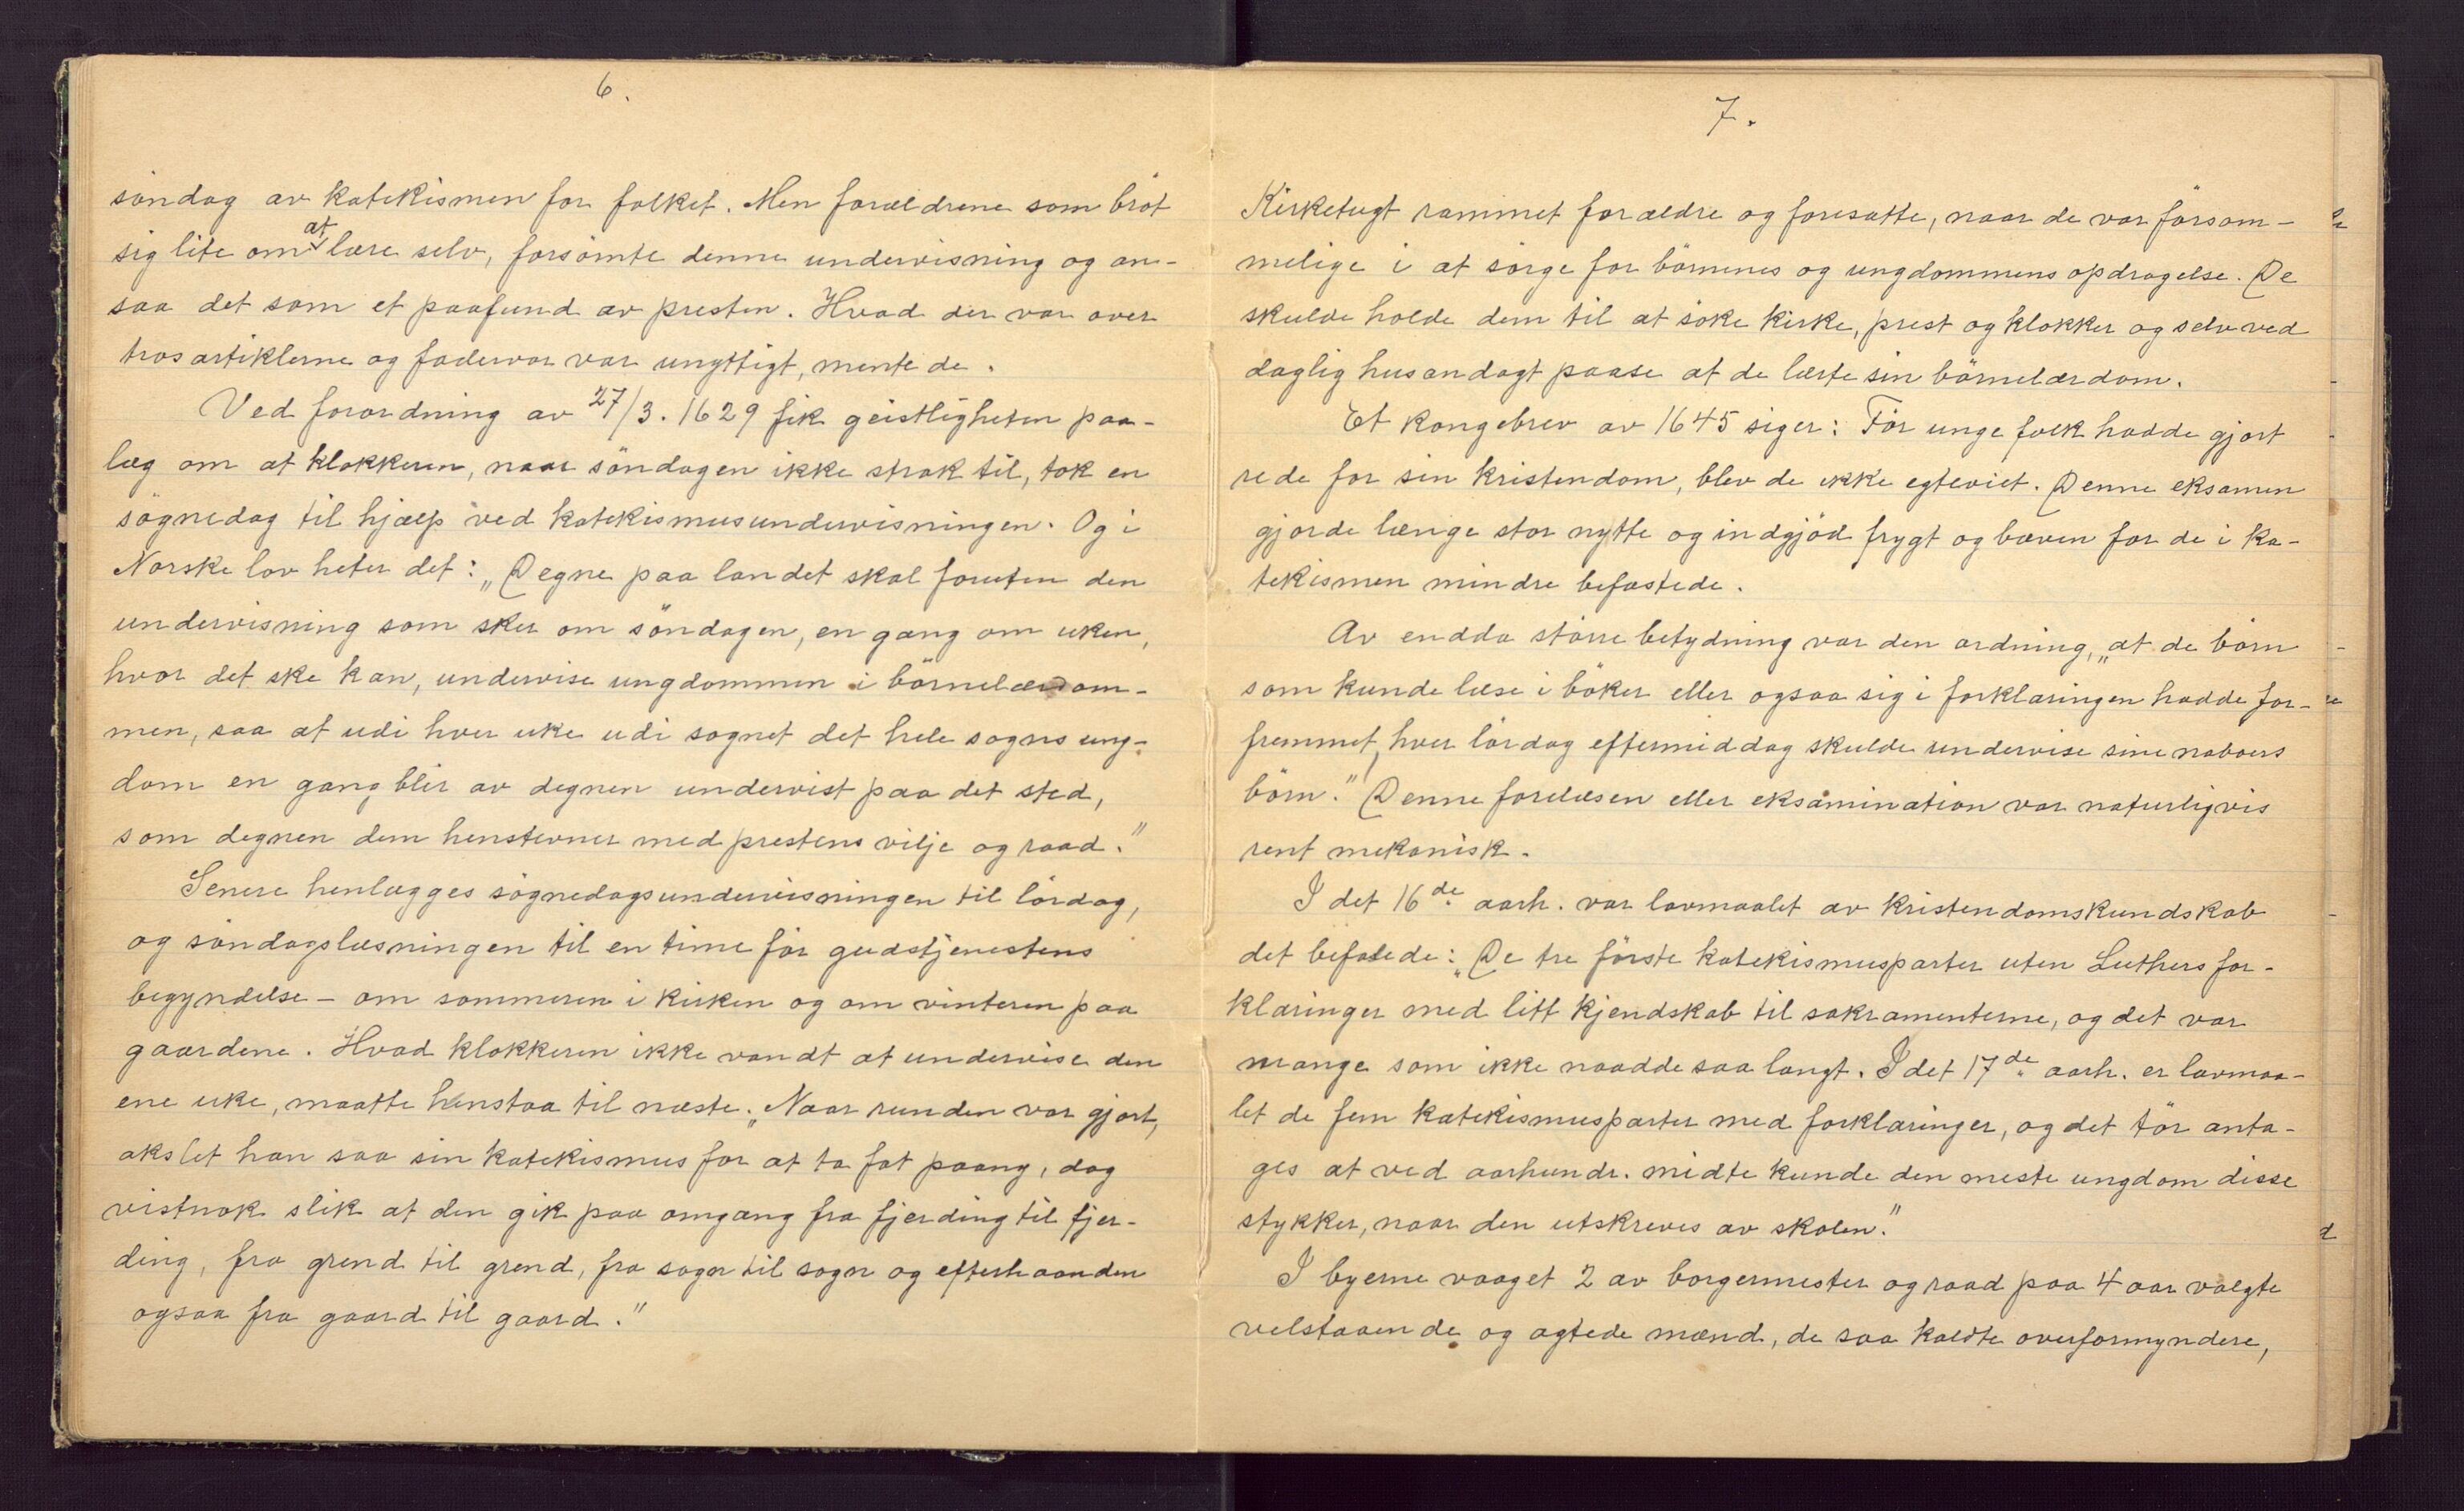 6.
söndag av katekismen for folket. Men forældrene som bröt
sig lite om at lære selv, forsömte denne undervisning og an-
saa det som et paafund av presten. Hvad der var over
trosartiklerne og fadervor var unyttigt, mente de.
Ved forordning av 27/3. 1629 fik geistligheten paa-
læg om at klokkeren, naar söndagen ikke strak til, tok en
sögnedag til hjælp ved katekismusundervisningen. Og i
Norske lov heter det: „Degne paa landet skal foruten den
undervisning som sker om söndagen, en gang om uken,
hvor det ske kan, undervise ungdommen i börnelærdom-
men, saa at udi hver uke udi sognet det hele sogns ung-
dom en gang blir av degnen undervist paa det sted,
som degnen dem henstevner med prestens vilje og raad."
Senere henlægges sögnedagsundervisningen til lördag,
og söndagslæsningen til en time för gudstjenestens
begyndelse - om sommeren i kirken og om vinteren paa
gaardene. Hvad klokkeren ikke vandt at undervise den
ene uke, maatte henstaa til næste. „Naar runden var gjort,
akslet han saa sin katekismus for at ta fat paany, dog
vistnok slik at den gik paa omgang fra fjerding til fjer-
ding, fra grend til grend, fra sogn til sogn og efterhaanden
ogsaa fra gaard til gaard."
7.
Kirketugt rammet forældre og foresatte, naar de var försöm-
melige i at sörge for börnenes og ungdommens opdragelse. De
skulde holde dem til at söke kirke, prest og klokker og selv ved
daglig husandagt paase at de lærte sin börnelærdom.
Et kongebrev av 1645 siger: För unge folk hadde gjort
rede for sin kristendom, blev de ikke egteviet. Denne eksamen
gjorde længe stor nytte og indgjöd frygt og bæven for de i ka-
tekismen mindre befæstede.
Av endda större betydning var den ordning, „at de börn
som kunde læse i böker eller ogsaa sig i forklaringen hadde for-
fremmet, hver lördag eftermiddag skulde undervise sine naboers
börn." Denne forelæsen eller eksamination var naturligvis
rent mekanisk.
I det 16de aarh. var lavmaalet av kristendomskundskab
det befalede: „De tre förste katekismusparter uten Luthers for-
klaringer med litt kjendskab til sakramenterne, og det var
mange som ikke naadde saa langt. I det 17de aarh. er lavmaa-
let de fem katekismusparter med forklaringer, og det tör anta-
ges at ved aarhundr. midte kunde den meste ungdom disse
stykker, naar den utskreves av skolen."
I byerne vaaget 2 av borgermester og raad paa 4 aar valgte
velstaaende og agtede mænd, de saa kaldte overformyndere,